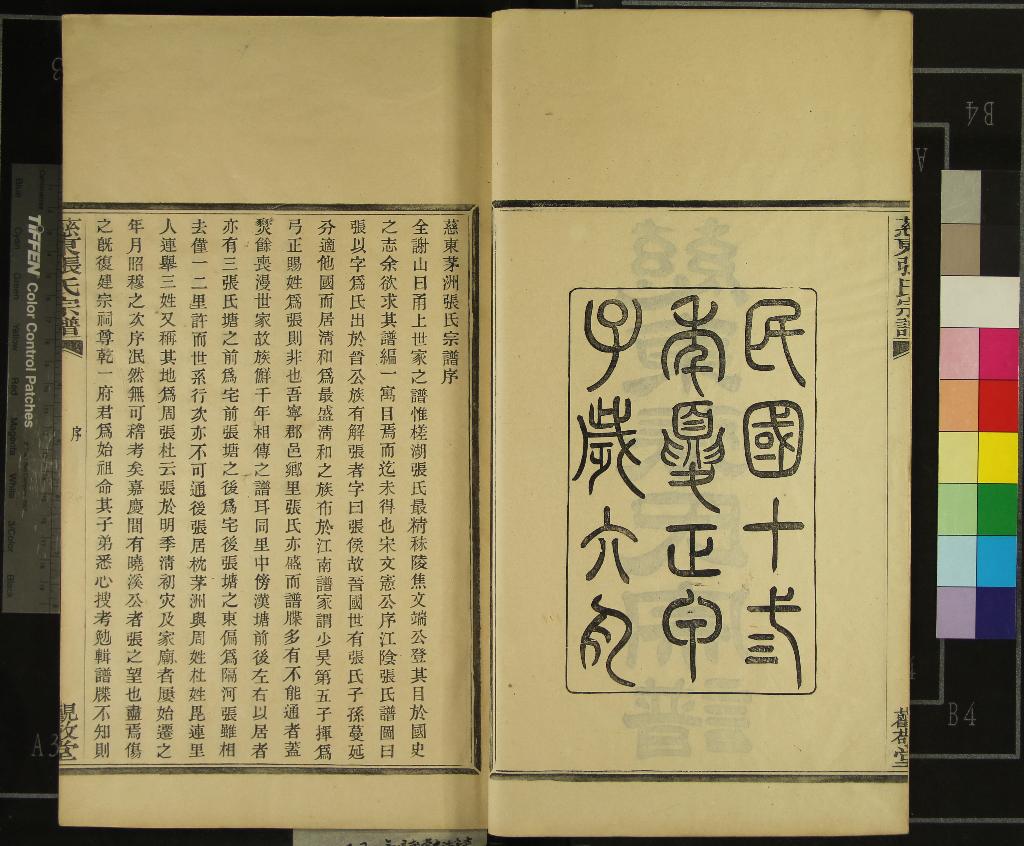 慈東張氏宗譜
觀敬堂
民國十弎
年夏正甲
子歲六月
慈東茅洲張氏宗譜序
全謝山曰甬上世家之譜惟槎湖張氏最精秣陵焦文端公登其目於國史
之志余欲求其譜編一寓目焉而迄未得也宋文憲公序江陰張氏譜圖曰
張以字爲氏出於晉公族有解張者字曰張侯故晉國世有張氏子孫蔓延
分適他國而居淸和爲最盛淸和之族布於江南譜家謂少昊第五子揮爲
弓正賜姓爲張則非也吾寧郡邑鄉里張氏亦盛而譜牒多有不能通者蓋
燹餘喪漫世家故族鮮千年相傳之譜耳同里中傍漢塘前後左右以居者
亦有三張氏塘之前爲宅前張塘之後爲宅後張塘之東偏爲隔河張雖相
去僅一二里許而世系行次亦不可通後張居枕茅洲與周姓杜姓毘連里
人連舉三姓又稱其地爲周張杜云張於明季淸初灾及家廟者屢始遷之
年月昭穆之次序泯然無可稽考矣嘉慶間有曉溪公者張之望也盡焉傷
之旣復建宗祠尊乾一府君爲始祖命其子弟悉心搜考勉輯譜牒不知則
慈東張氏宗譜
序
觀敬堂
TIFFEN Color Control Patches
Blue
Cyan
Green
Yellow
Red
Magenta
White
3/Color
Black
B4
A
B4
A3